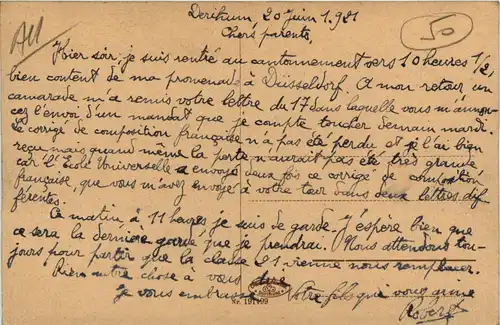 All
50
Derikum, 20 Juin 1.921
Chers parents,
Hier soir, je suis rentré au cantonnement vers 10 heures 1/2
bien content de ma promenade à Düsseldorf. A mon retour un
camarade m'a remis votre lettre du 17 dans laquelle vous m'annon-
cez l'envoi d'un mandat que je compte toucher demain mardi
le corrigé de composition française n'a pas été perdu et je l'ai bien
reçu mais quand même la perte n'aurait pas été très grande
car l'Ecole Universelle a envoyé deux fois ce corrigé de composition
française, que vous m'avez envoyé à votre tour dans deux lettres dif-
férentes.
Ce matin à 11 heures je suis de garde. J'espère bien que
ce sera la dernière garde que je prendrai. Nous attendons tou-
jours pour partir que la classe 21 vienne nous remplacer.
Rien autre chose à vous dire
Je vous embrasse Votre fils qui vous aime
Robert
Nr. 191199